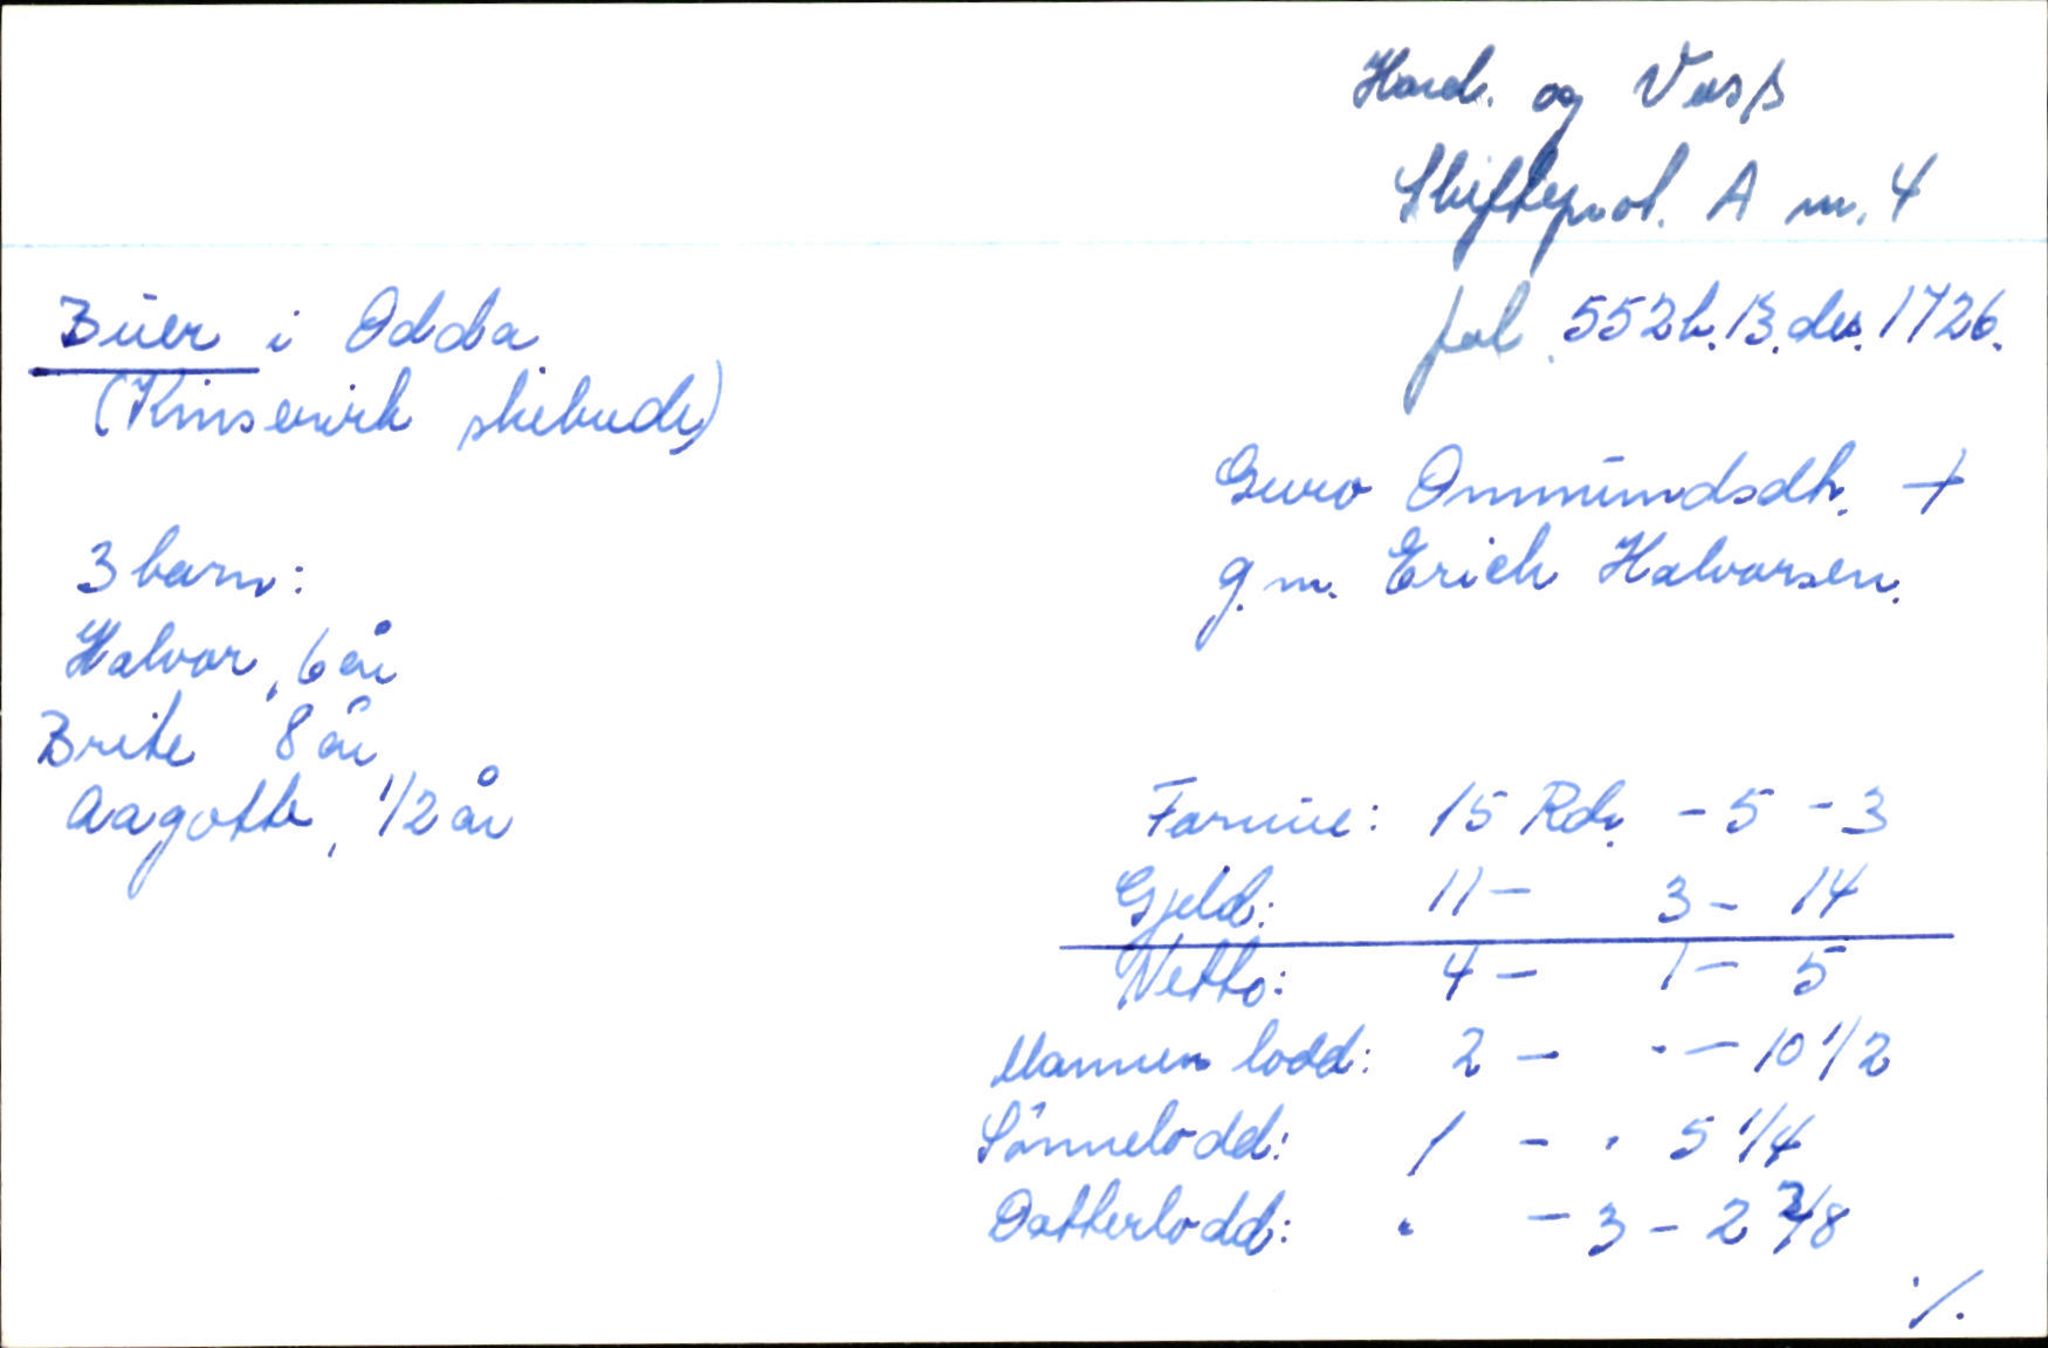 Hard. og Voss
Skifteprot. A nr. 4
fol. 552b. 13. des. 1726.
Büer i Odda
(Kinservik skibude)
Guro Ommundsdtr. +
g.m. Erich Halvorsen.
3 barn:
Halvor, 6 år
Brite 8 år
Aagotte, 1/2 år
Formue: 15 Rd. - 5 - 3
Gjeld: 11 - 3 - 14
Netto: 4 - 1 - 5
Mannen lodd: 2 - · - 10 1/2
Sönnelodd: 1 - · 5 1/4
Datterlodd: · - 3 - 2 3/8
·/.